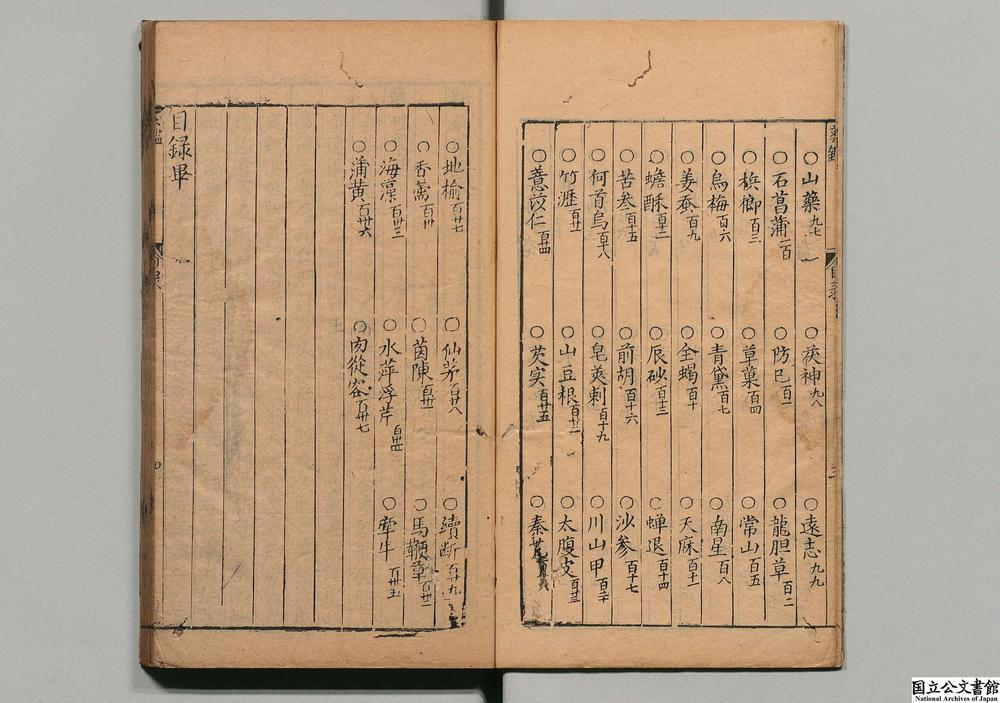 ○山藥九七 ○茯神九八 ○遠志九九
○石菖蒲一百 ○防已百一 ○龍胆草百二
○梹榔百三 ○草菓百四 ○常山百五
○烏梅百六 ○青黛百七 ○南星百八
○姜蚕百九 ○全蝎百十 ○天麻百十一
○蟾酥百十二 ○辰砂百十三 ○蝉退百十四
○苦参百十五 ○前胡百十六 ○沙参百十七
○何首烏百十八 ○皂莢刺百十九 ○川山甲百二十
○竹瀝百廿一 ○山豆根百廿二 ○太腹皮百廿三
○薏苡仁百廿四 ○芡实百廿五 ○秦艽
○地榆百廿七 ○仙茅百廿八 ○續断百廿九
○香薷百卅 ○茵陳百卅一 ○馬鞭草
○海藻百卅三 ○水萍浮芹百卅四 ○牽牛百卅五
○蒲黄百卅六 ○肉從容百卅七
目録畢
国立公文書館
National Archives of Japan